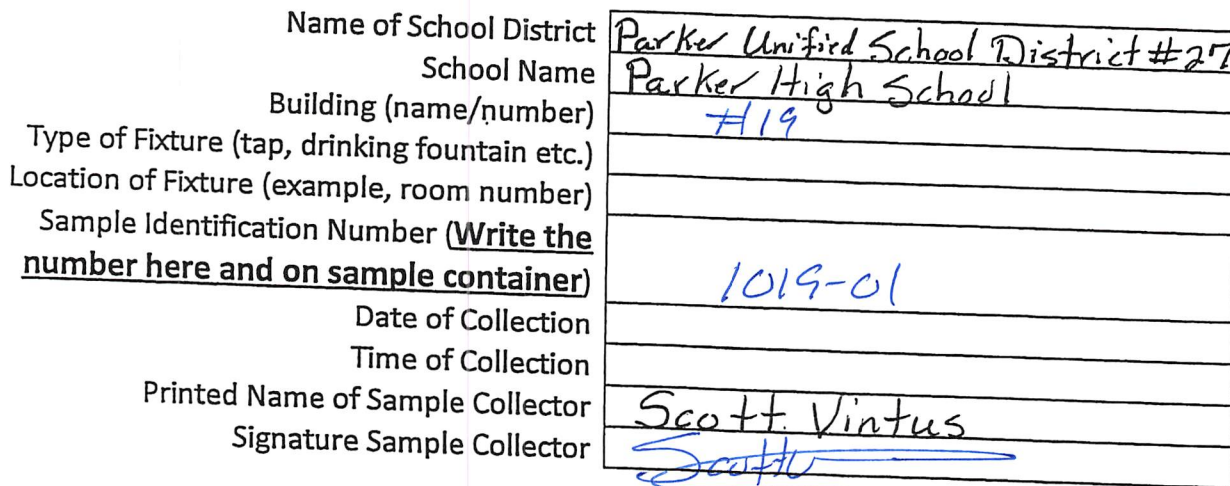 Name of School District Parker Unified School District #27
School Name Parker High School
Building (name/number) #19
Type of Fixture (tap, drinking fountain etc.)
Location of Fixture (example, room number)
Sample Identification Number (Write the
number here and on sample container) 1019-01
Date of Collection
Time of Collection
Printed Name of Sample Collector Scott Vintus
Signature Sample Collector